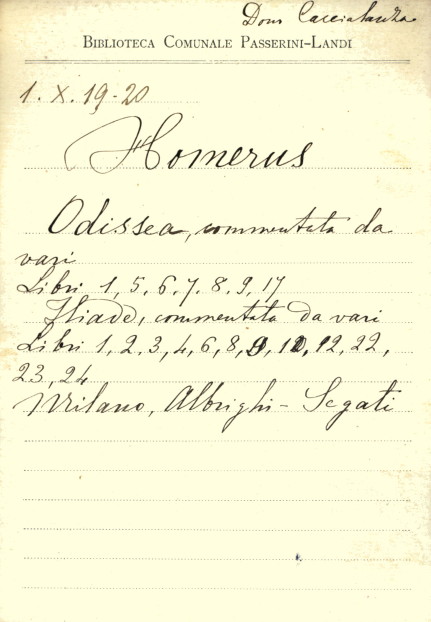 Dono Cacciatanza
BIBLIOTECA COMUNALE PASSERINI-LANDI
1. X. 19-20
Homerus
Odissea, commentata da
vari
Libri 1, 5, 6, 7, 8, 9, 17
Iliade, commentata da vari
Libri 1, 2, 3, 4, 6, 8, 9, 10, 12, 22,
23, 24
Milano, Albrighi - Segati